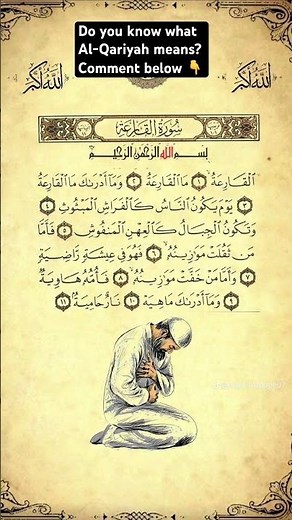 Do you know what
Al-Qariyah means?
Comment below 👇
الله أكبر
الله أكبر
سُورَةُ القَارِعَةِ
بِسْمِ اللهِ الرَّحْمٰنِ الرَّحِيمِ
الْقَارِعَةُ ١ مَا الْقَارِعَةُ ٢ وَمَا أَدْرَىٰكَ مَا الْقَارِعَةُ
٣ يَوْمَ يَكُونُ النَّاسُ كَالْفَرَاشِ الْمَبْثُوثِ ٤
وَتَكُونُ الْجِبَالُ كَالْعِهْنِ الْمَنفُوشِ ٥ فَأَمَّا
مَن ثَقُلَتْ مَوَٰزِينُهُۥ ٦ فَهُوَ فِي عِيشَةٍ رَّاضِيَةٍ
٧ وَأَمَّا مَنْ خَفَّتْ مَوَٰزِينُهُۥ ٨ فَأُمُّهُۥ هَاوِيَةٌ
٩ وَمَا أَدْرَىٰكَ مَا هِيَهْ ١٠ نَارٌ حَامِيَةٌ ١١